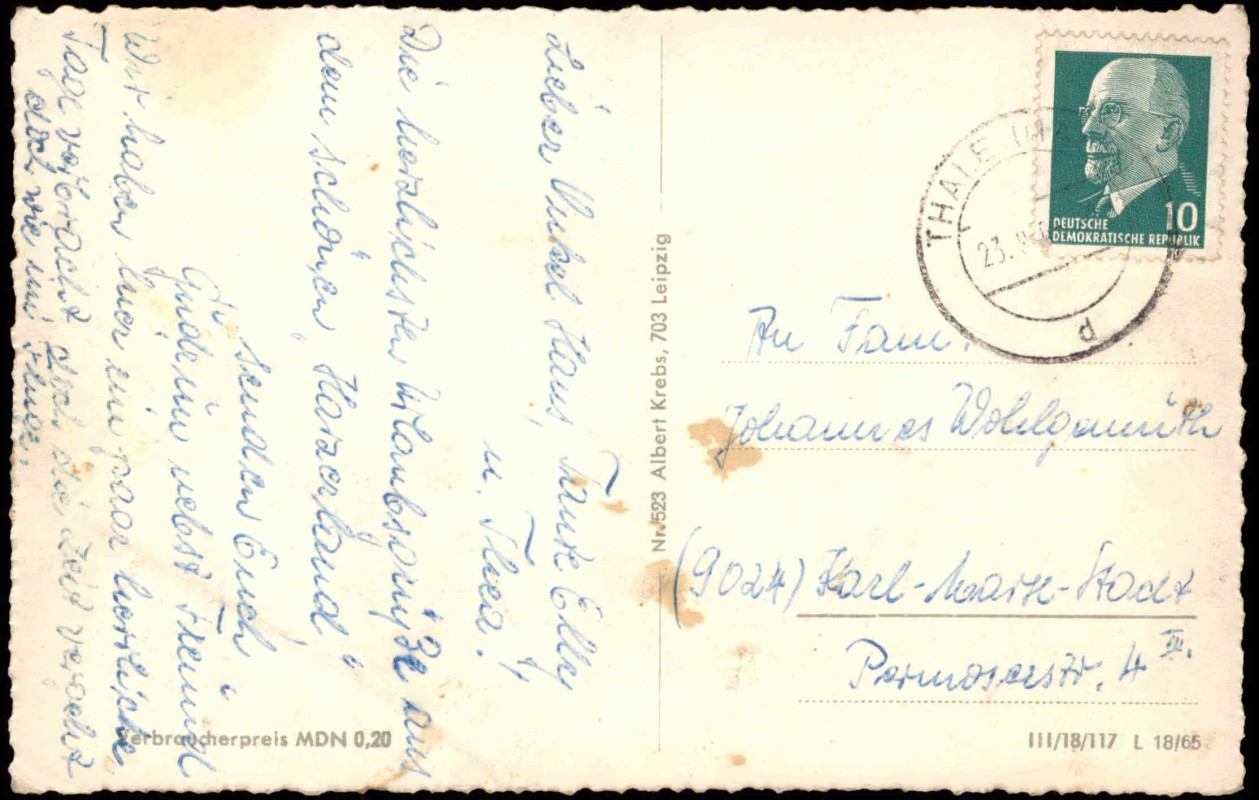 Lieber Onkel Hans, Tante Elly
u. Thea!
Die herzlichsten Urlaubsgrüße aus
dem schönen „Harzerland“
senden Euch
Gudrun nebst Freund
Wir haben hier ein paar herrliche
Tage verbracht doch die Zeit
doch wie im Fluge.
Nr. 523 Albert Krebs, 703 Leipzig
Verbraucherpreis MDN 0,20
THALE (HA
23.
d
10
DEUTSCHE
DEMOKRATISCHE REPUBLIK
An Fam.
Johannes Wohlgemuth
(9024) Karl-Marx-Stadt
Permoserstr. 4 III.
III/18/117 L 18/65